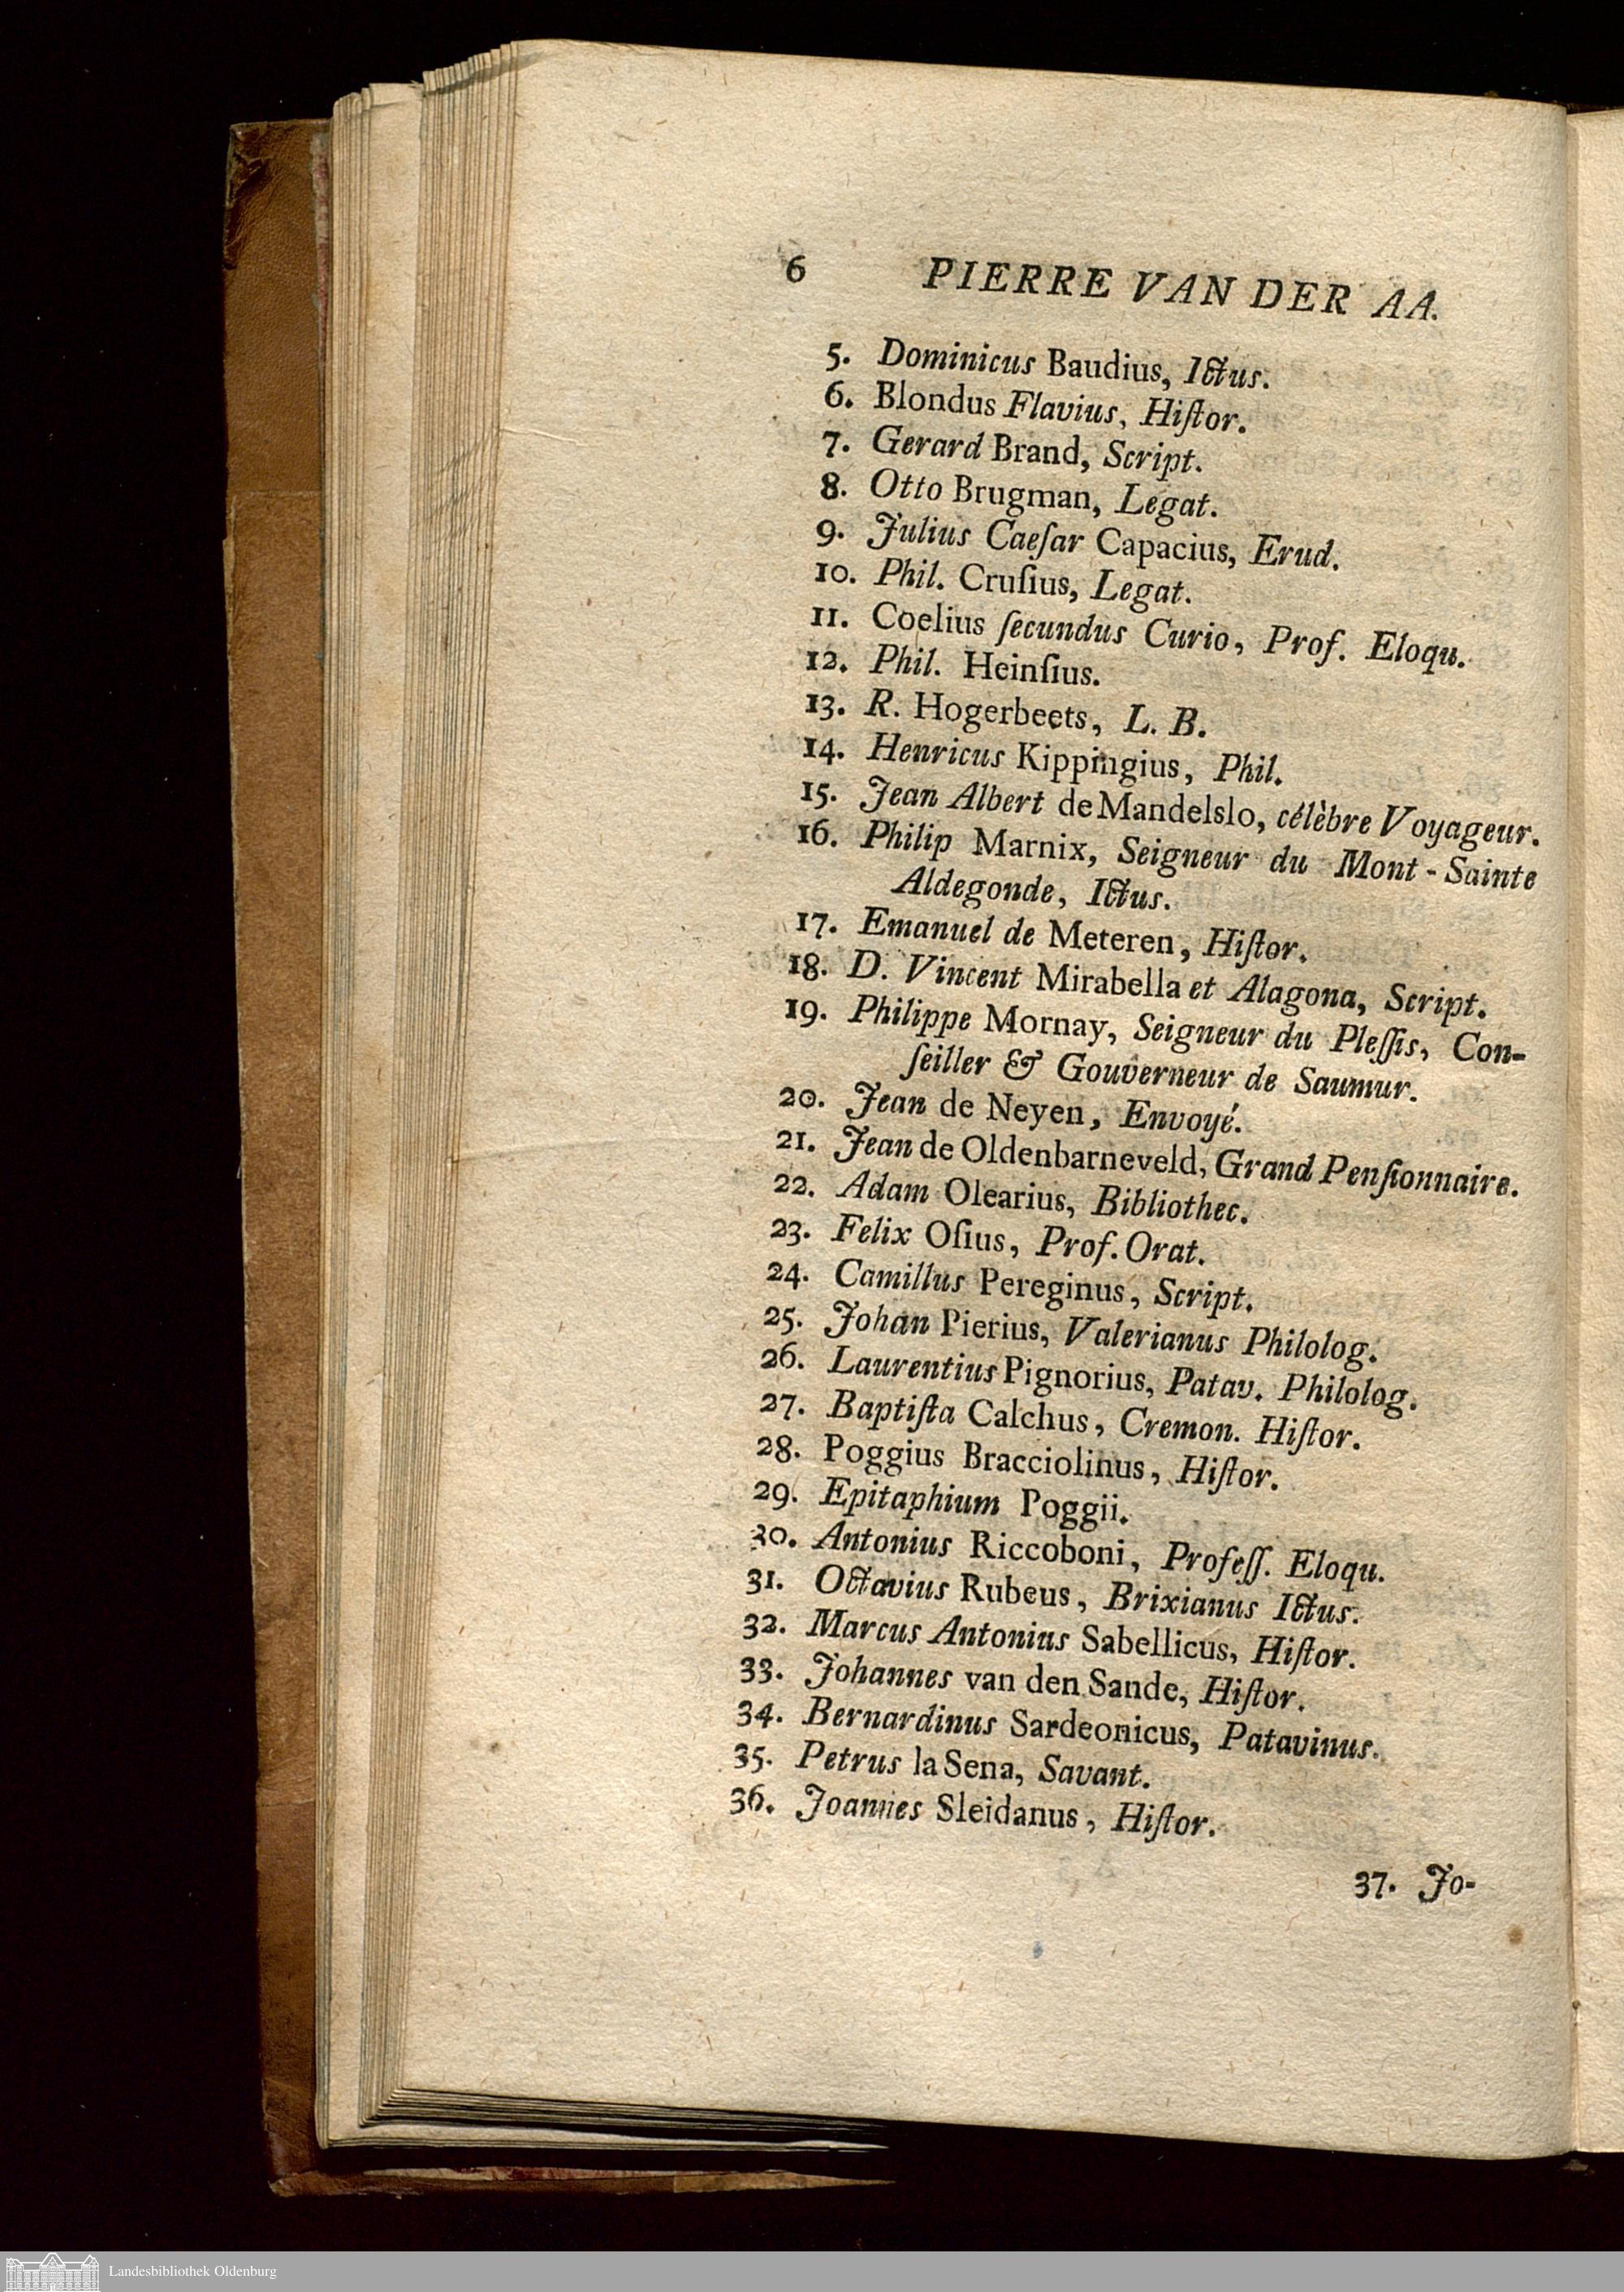 6 PIERRE VAN DER AA.
5. Dominicus Baudius, Ictus.
6. Blondus Flavius, Hiſtor.
7. Gerard Brand, Script.
8. Otto Brugman, Legat.
9. Julius Caeſar Capacius, Erud.
10. Phil. Cruſius, Legat.
11. Coelius ſecundus Curio, Prof. Eloqu.
12. Phil. Heinſius.
13. R. Hogerbeets, L. B.
14. Henricus Kippingius, Phil.
15. Jean Albert de Mandelslo, célèbre Voyageur.
16. Philip Marnix, Seigneur du Mont-Sainte
Aldegonde, Ictus.
17. Emanuel de Meteren, Hiſtor.
18. D. Vincent Mirabella et Alagona, Script.
19. Philippe Mornay, Seigneur du Pleſſis, Con-
ſeiller & Gouverneur de Saumur.
20. Jean de Neyen, Envoyé.
21. Jean de Oldenbarneveld, Grand Penſionnaire.
22. Adam Olearius, Bibliothec.
23. Felix Oſius, Prof. Orat.
24. Camillus Pereginus, Script.
25. Johan Pierius, Valerianus Philolog.
26. Laurentius Pignorius, Patav. Philolog.
27. Baptiſta Calchus, Cremon. Hiſtor.
28. Poggius Bracciolinus, Hiſtor.
29. Epitaphium Poggii.
30. Antonius Riccoboni, Profeſſ. Eloqu.
31. Octavius Rubeus, Brixianus Ictus.
32. Marcus Antonius Sabellicus, Hiſtor.
33. Johannes van den Sande, Hiſtor.
34. Bernardinus Sardeonicus, Patavinus.
35. Petrus la Sena, Savant.
36. Joannes Sleidanus, Hiſtor.
37. Jo-
Landesbibliothek Oldenburg